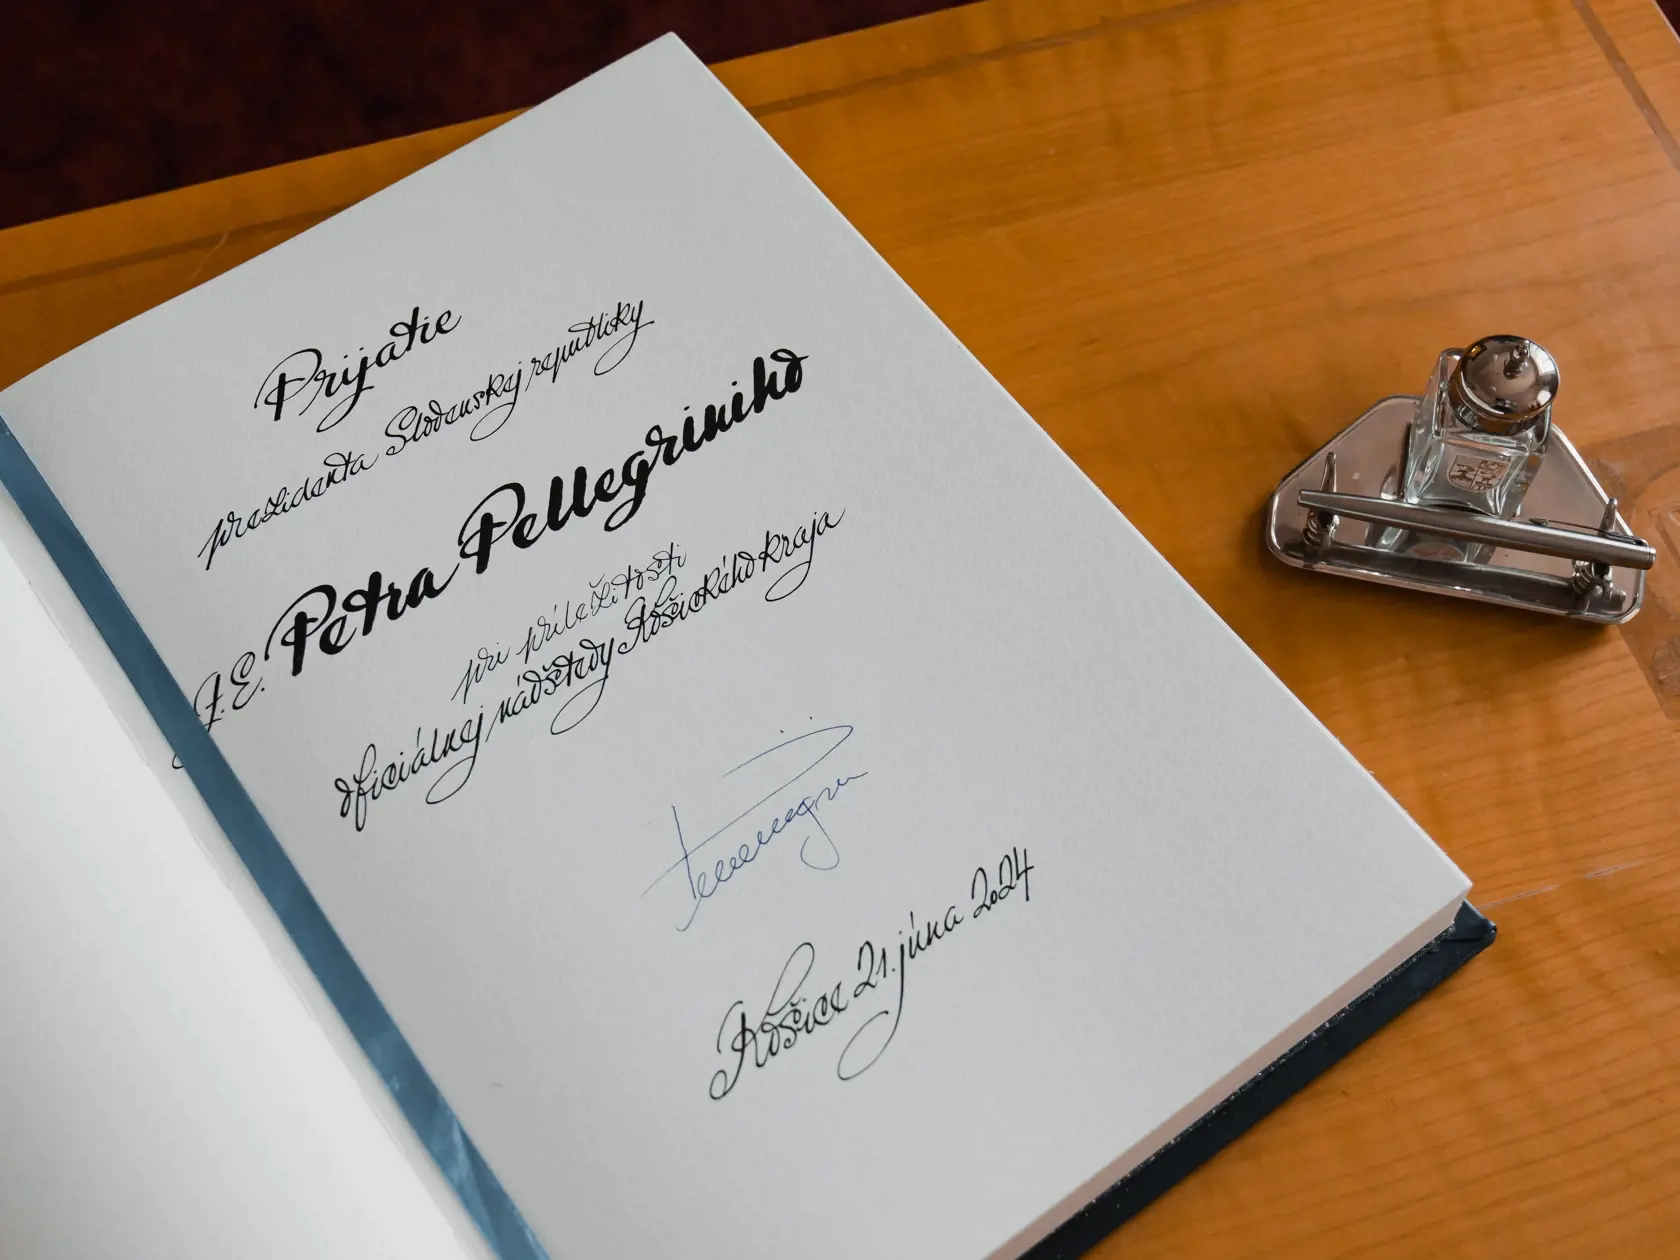 Prijatie
prezidenta Slovenskej republiky
J. E. Petra Pellegriniho
pri príležitosti
oficiálnej návštevy Košického kraja
Košice 21. júna 2024